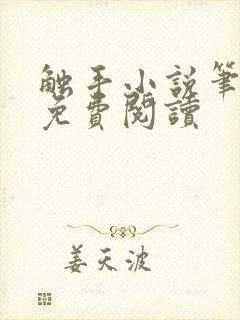 触手小说筆
免費閱讀
姜天波